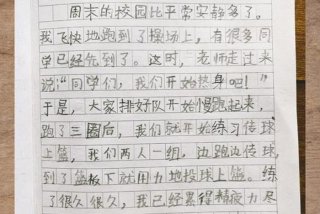 周末的校园比平常安静多了。
我飞快地跑到了操场上，有很多同
学已经先到了。这时，老师走过来
说：“同学们，我们开始热身吧！”
于是，大家排好队开始慢跑起来，
跑了三圈后，我们就开始练习传球
上篮，我们两人一组，边跑边传球，
到了篮板下就用力地投球上篮。练
了很久很久，我已经累得精疲力尽